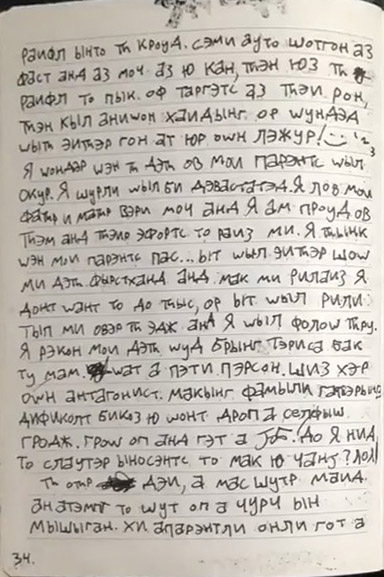 раифл ынто тһ кроуд. сэми ауто шотгон аз
фаст анд аз моч аз ю кан, тһэн юз тһ
раифл то пык оф таргэтс аз тһэи рон,
тһэн кыл анишон хаидынг ор wундэд
wыth эитһэр гон ат юр оwн лэжур!
Я wондэр wэн тһ дэтһ ов мои парэнтс wыл
окур. Я шурли wыл би дэвастатэд. Я лов мои
фатһр и матһр вэри моч анд Я ам проуд ов
тһэм анд тһэир эфортс то раиз ми. Я тһынк
wэн мои парэнтс пас... ыт wыл эитһэр шоw
ми дэтһ фырстханд анд мак ми рилаиз Я
донт wант то до тһыс, ор ыт wыл рили
тыл ми овэр тһ эдж анд Я wыл фолоw тһру.
Я рэкон мои дэтһ wуд брынг Тэриса бак
ту мам. wат а пэти пэрсон. Шиз хэр
оwн антагонист. макынг фамыли гатһэрынг
дификолт бикоз ю wонт дроп а сэлфыш
гродж. гроw оп анд гэт а job. до Я нид
то слаутэр ыносэнтс то мак ю чанж? лол
тһ отһр дэи, а мас шутр маид
ан атэмпт то шут оп а чурч ын
мышыган. хи апарэнтли онли гот а
34.